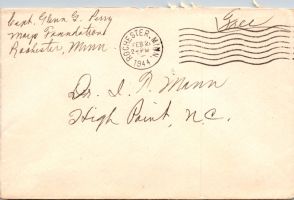 Capt. Glenn G. Perry
Mayo Foundation
Rochester, Minn.
Free
ROCHESTER, MINN.
FEB
2 - PM
1944
Dr. I. T. Mann
High Point, N.C.